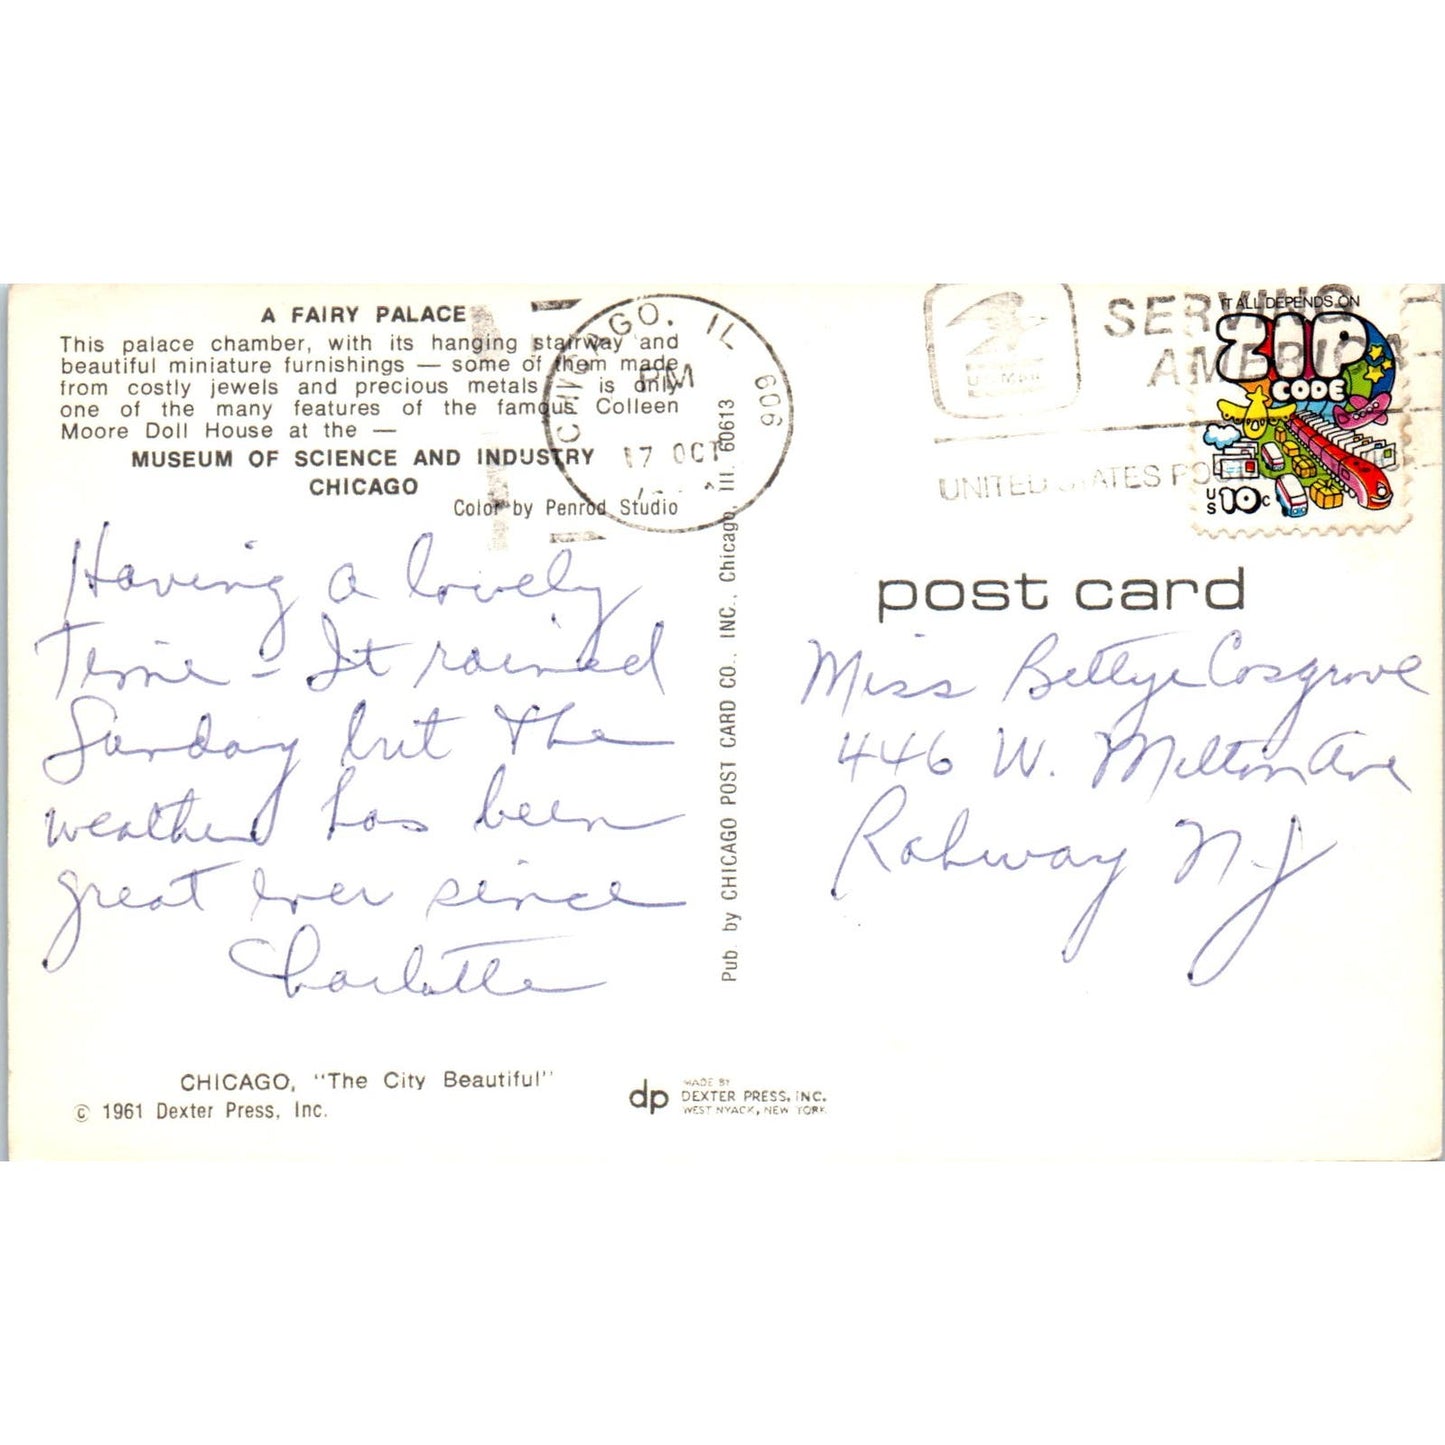 A FAIRY PALACE
This palace chamber, with its hanging stairway and
beautiful miniature furnishings — some of them made
from costly jewels and precious metals — is only
one of the many features of the famous Colleen
Moore Doll House at the —
MUSEUM OF SCIENCE AND INDUSTRY
CHICAGO
Color by Penrod Studio
Having a lovely
Time - It rained
Sunday but the
weather has been
great ever since
Charlotte
CHICAGO, "The City Beautiful"
© 1961 Dexter Press, Inc.
Pub. by CHICAGO POST CARD CO., INC., Chicago, Ill. 60613
dp
MADE BY
DEXTER PRESS, INC.
WEST NYACK, NEW YORK
CHICAGO, IL 606
PM
17 OCT
U.S. MAIL
SERVING
AMERICA
UNITED STATES
IT ALL DEPENDS ON
ZIP
CODE
US 10c
post card
Miss Bettye Cosgrove
446 W. Milton Ave
Rahway NJ